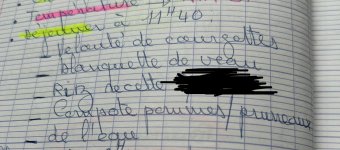 • Déjeuner à 11h40
- Velouté de courgettes
- blanquette de veau
- Riz
- Compote pommes/pruneaux
- de l'eau